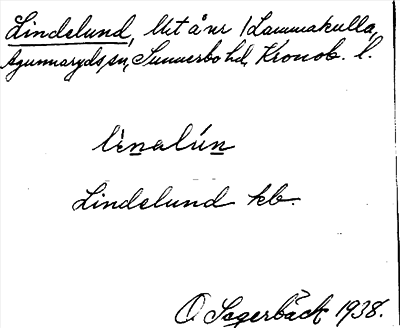 Lindelund, Utt å nr 1 Lammakulla,
Agunnaryds sn, Sunnerbo hd, Kronob. l.
lìnalún
Lindelund kb.
O Sagerbäck 1938.